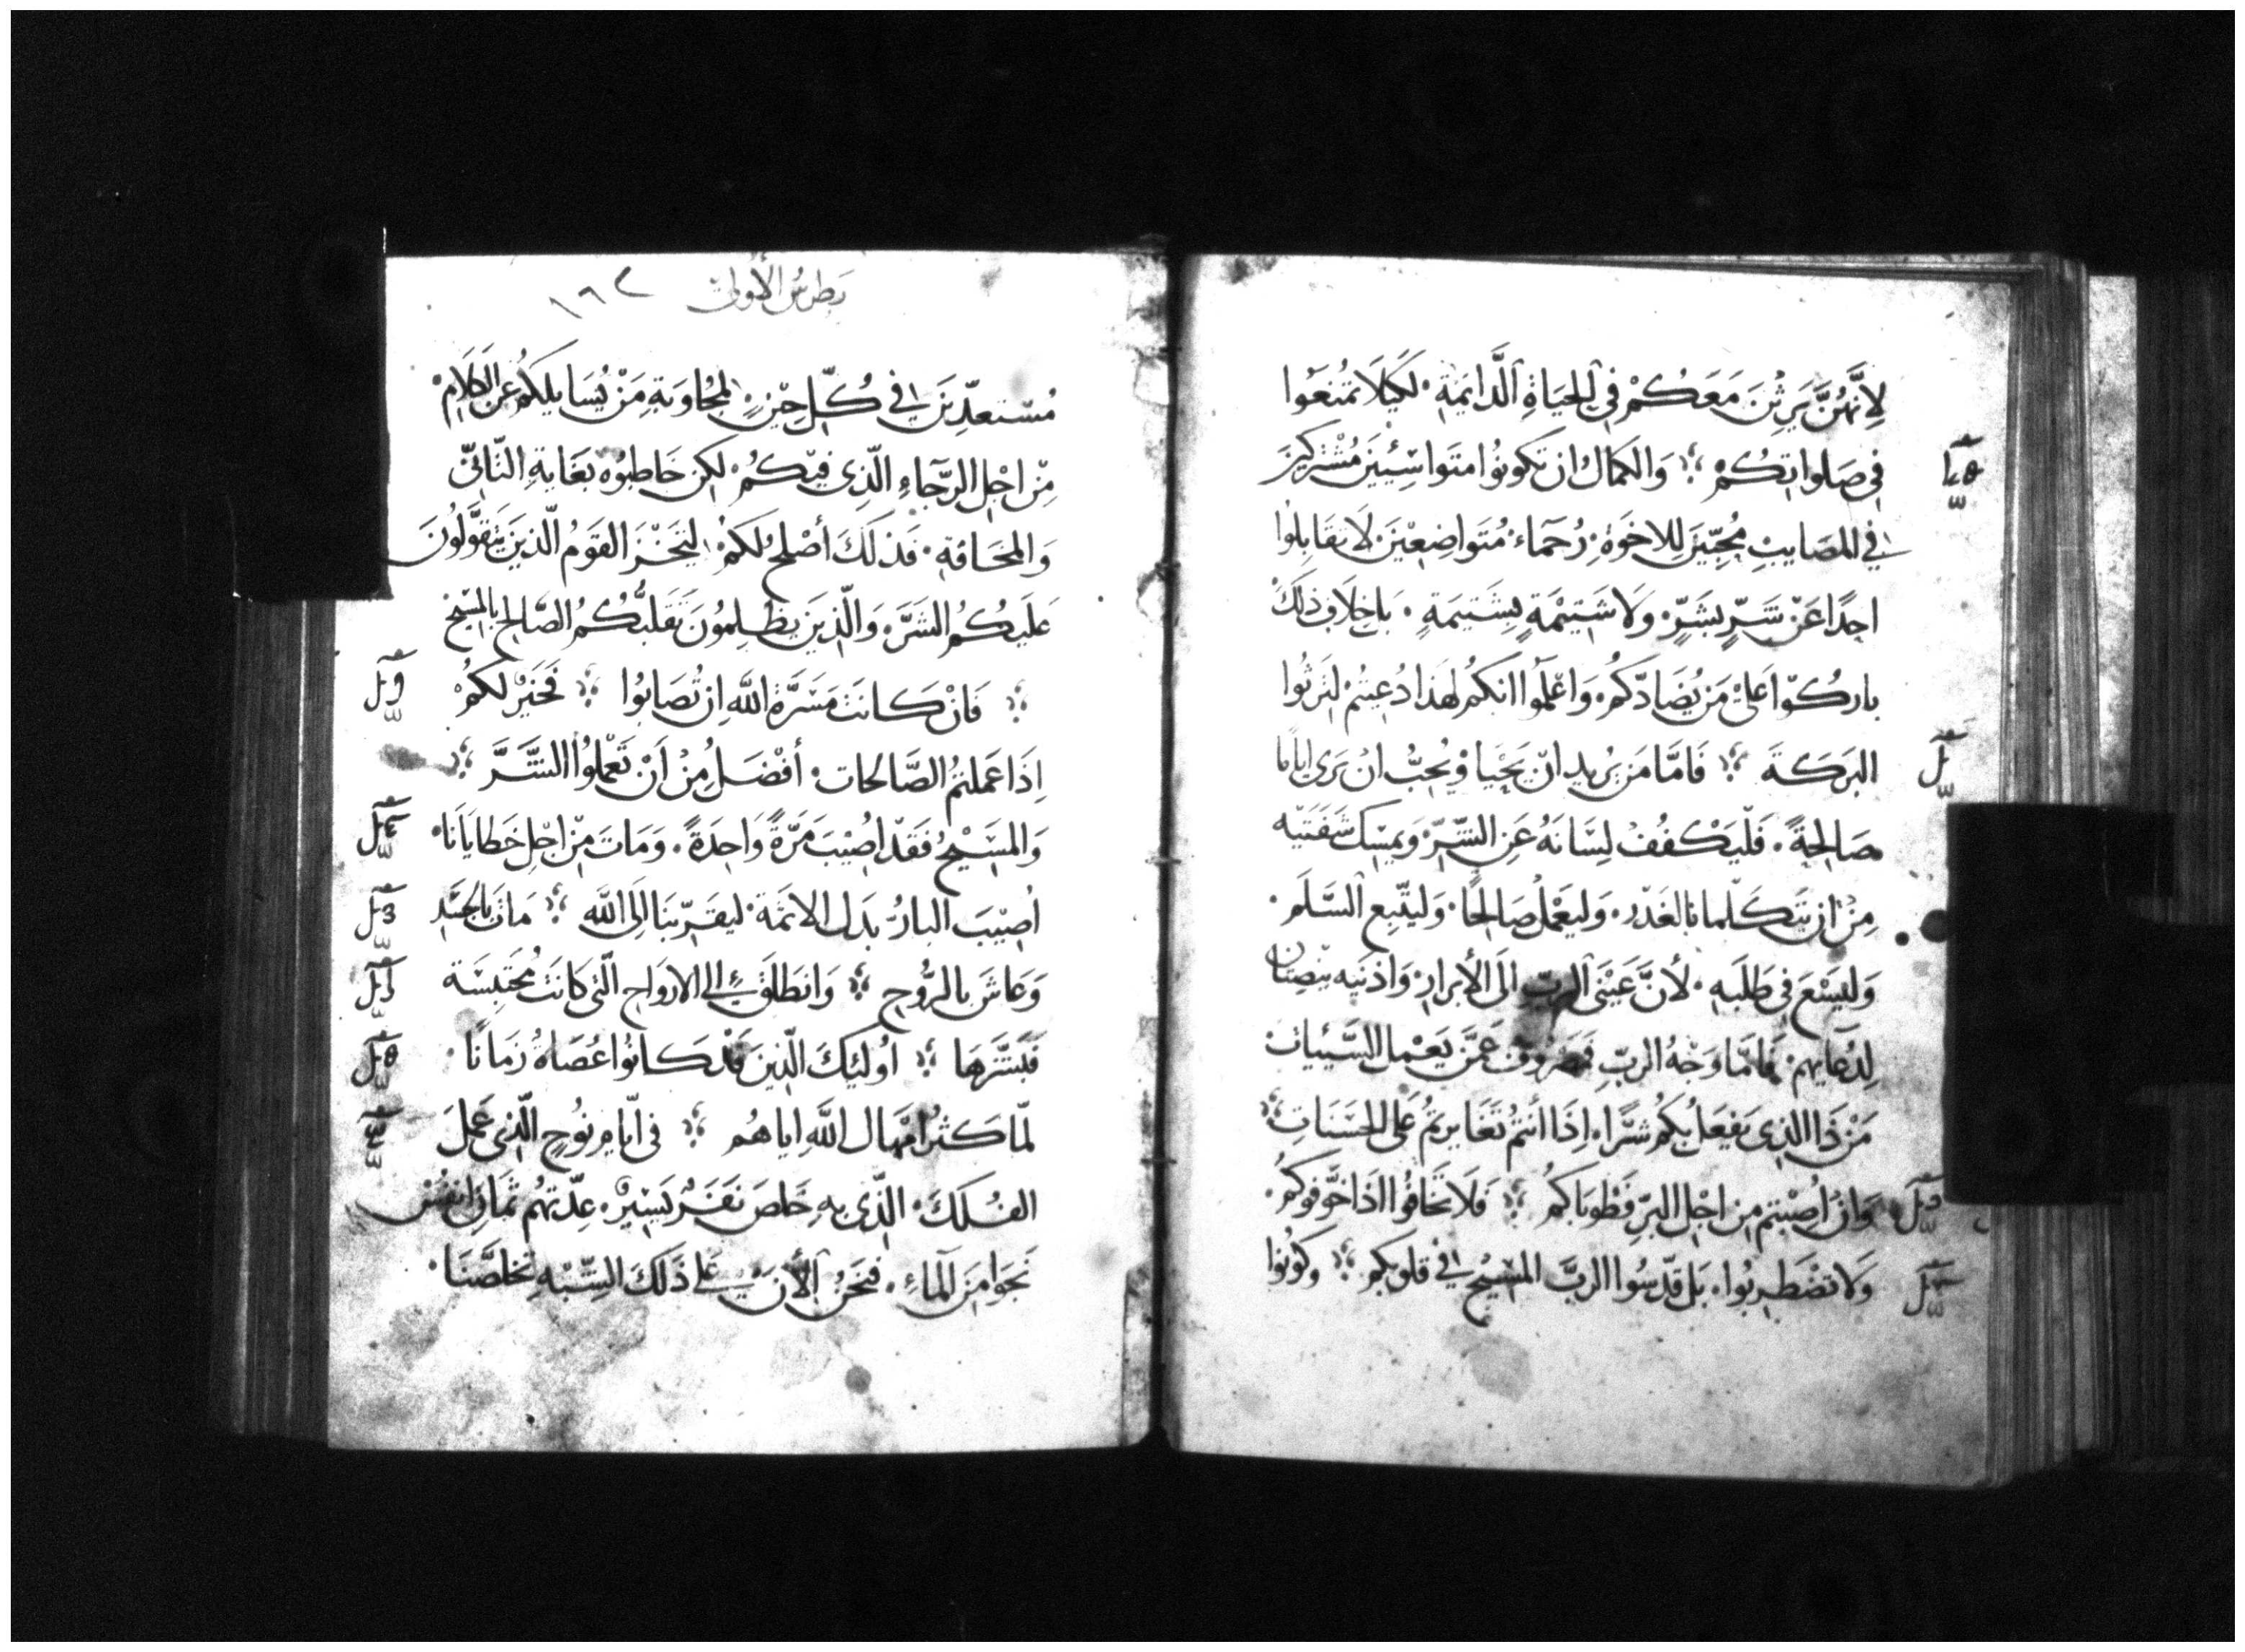 لِانَّهُنَّ يَرِثْنَ مَعَكُمْ فِي الحَيَاةِ الدَّايمَةِ. لكَيلَا تمُنعَوا
فِي صَلواتِكُمْ ۞ وَالكمَالُ ان تكونوُا متَواسِيِّينَ مُشْتركينَ
في المصَايبِ مُحِبّيَن لِلاخوَةِ. رُحَمآء مُتَواضِعْينَ لَا تقَابِلوُا
احِدًا عَنْ شَرٍّ بِشَرٍّ. وَلا شَتِيْمَةٍ بِشَتيمَةٍ. بَل بخِلَافِ ذلكَ
باركُوّا عَلىْ مَن يُضَادّكمُ. وَاعْلَموُا انكمُ لهَذا دُعِيتُمْ لتَرثُوا
البَركَةَ ۞ فَامَّا مَن يُريد انْ يَحْيا وَ يُحِبُّ انْ يَرى ايامًا
صَالِحةً. فَلْيَكْفُفْ لِسَانَهُ عَنِ الشّرِّ وَيمسِك شَفَتيْه
مِنْ ان يَتَكلّما بالغَدْر. وَليَعْملْ صَالِحًا. وَليَتّبِع السَّلَم.
وَليَسْعَ في طَلبَهِ. لأنَّ عَيْنَي الربّ الَى الأبرار. وَاذنَيه ينَصِتان
لِدُعايهِم. فَامّا وَجْهُ الربِّ فمَصْروفٌ عَمَّن يَعْمل السَّيئات
مَنْ ذَا الذِى يَفعَل بكمُ شرًّا. اِذَا أنتُم تَغَايرتمُ عَلى الحسَنَاتِ ۞
وَانْ اُصِبْتم مِن اجْلِ البرِّ فَطُوبَاكمُ ۞ فَلَا تخَافوُا اذَا خَوّفوُكمُ.
وَلا تضْطَرِبُوا. بَل قدّسوُا الربَّ المَسِيْحَ في قلوبكم ۞ وَكوُنوُا
بطرس الأولى ١٩٢
مُسْتعدِّينَ في كُلّ حِيْنٍ. لمجُاوَبةِ مَنْ يُسَايلكمُ عن الكلَامِ
مِنْ اجْل الرَّجآءِ الّذِى فيْكمُ. لكن خَاطبُوُه بغَايةِ التّأنيّ
وَالمخَافةِ. فَذلكَ أصْلَح لكمُ. ليَخْزَ القَومُ الّذينَ يَتقوَّلُونَ
عَليَكمُ الشَرَّ. وَالّذينَ يَظلِمُونَ تَقلّبُكمُ الصّالِح بالمسِيْح
۞ فَانْ كانتَ مَسَرَّةُ اللّه ان تُصَابوُا ۞ فَخَيْرٌ لكمُ
اِذَا عَملتمُ الصَّالحات. أفْضَلُ مِنْ اَنْ تَعْملوُا الشَّرَّ ۞
وَالمسَيْحُ فَقَدْ اصُيْبَ مَرّةً وَاحِدَةً. وَمَاتَ مِنْ اجْلِ خَطايَانا.
اُصِيْبَ البارُّ بدَل الاثمَة. ليقَرّبنَا الَى اللّه ۞ مَاتَ بالجسَدِ
وَعَاشَ بالرُّوح ۞ وَانطَلقَ الى الارواح الّتى كَانَتْ مُحتَبِسَة
فبَشَّرَها ۞ اُولئِكَ الّذينَ قَدْ كانوُا عُصَاةً زمَانًا.
لمّا كثرُ امْهَال اللّه اياهُم ۞ فى ايّام نوُحٍ الّذِى عَملَ
الفُلكَ. الذِّى بهِ خَلصَ نفَرٌ يَسيْرٌ. عِدّتهُم ثمَان انفُسْ
نَجَوا مِنَ المآءِ. فنَحَنُ الأن عَلى ذَلكَ الشِّبْهِ تخلصَّنَا.